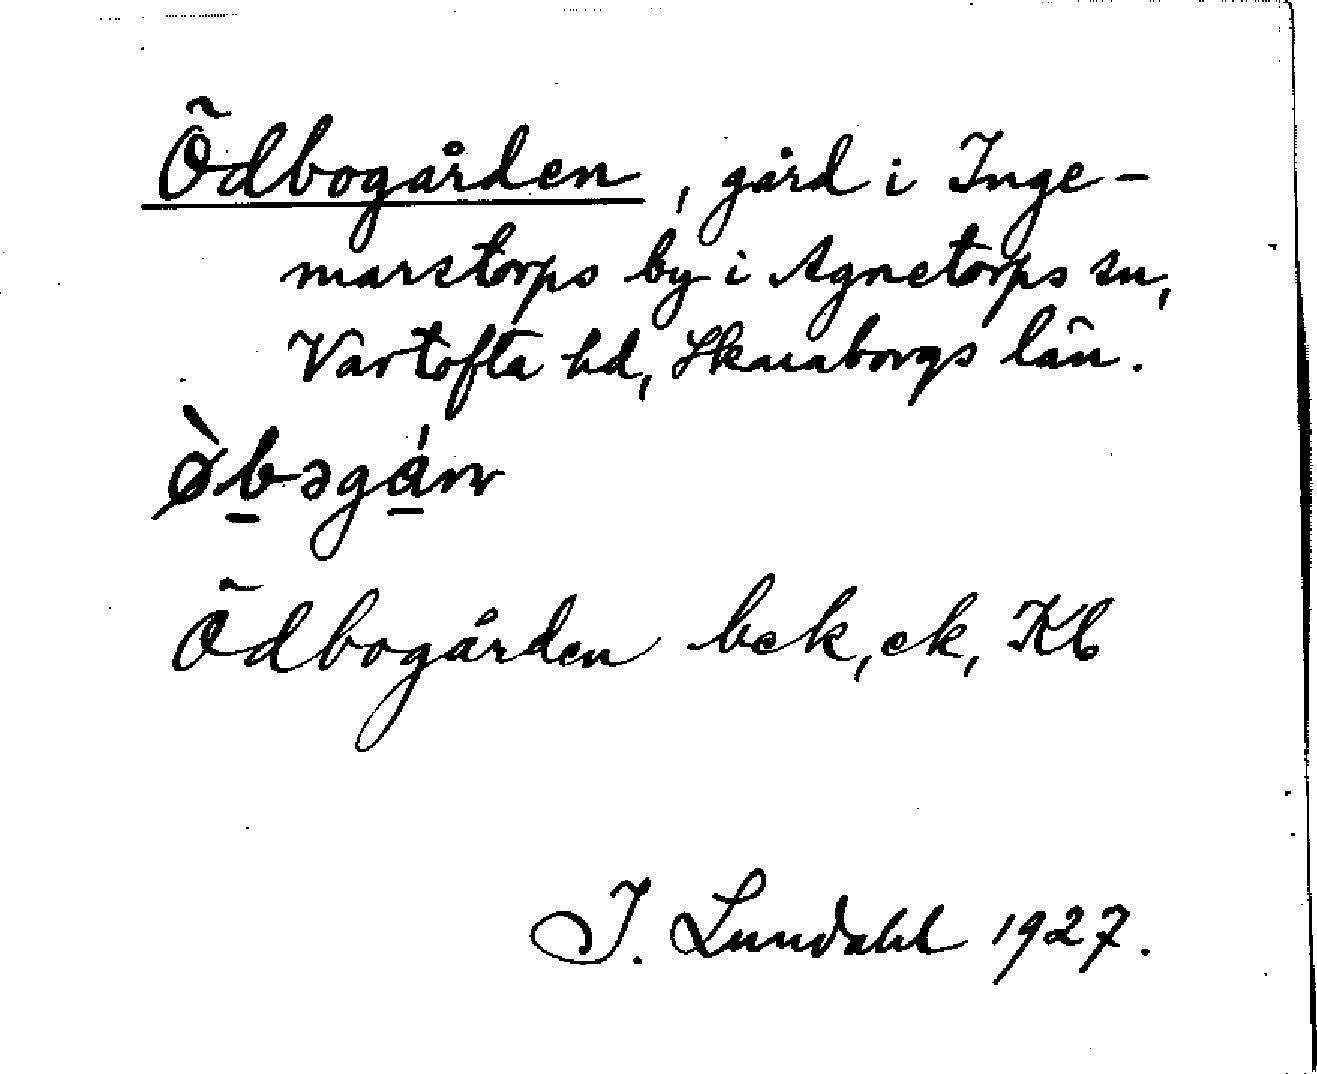 Ödbogården, gård i Inge-
marstorps by i Agnetorps sn,
Vartofta hd, Skaraborgs län.
ø̀bəgán
Ödbogården bck, ek, Kb
I. Lundahl 1927.